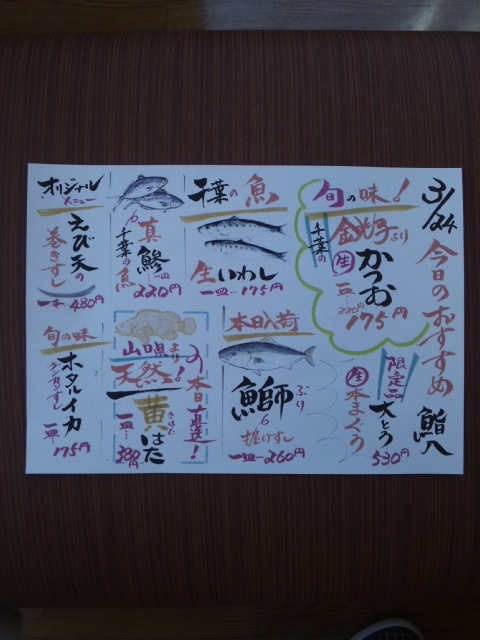 3/24
今日のおすすめ
鮨八
旬の味!
銚子より
千葉の
生
かつお
一皿…
175円
限定品
大とろ
生
本まぐろ
530円
千葉の魚
生いわし
一皿…175円
本日入荷
鰤
ぶり
握りずし
一皿…260円
真鯵
一皿…
220円
千葉の魚
山唄より
天然!
本日直送!
黄はた
きはた
一皿…
オリジナル
メニュー
えび天の
巻きずし
一本…480円
旬の味
ホタルイカ
グンカンずし
一皿…
175円